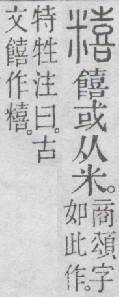 糦饎或从米。商頌字
如此作。
特牲注曰。古
文饎作糦。